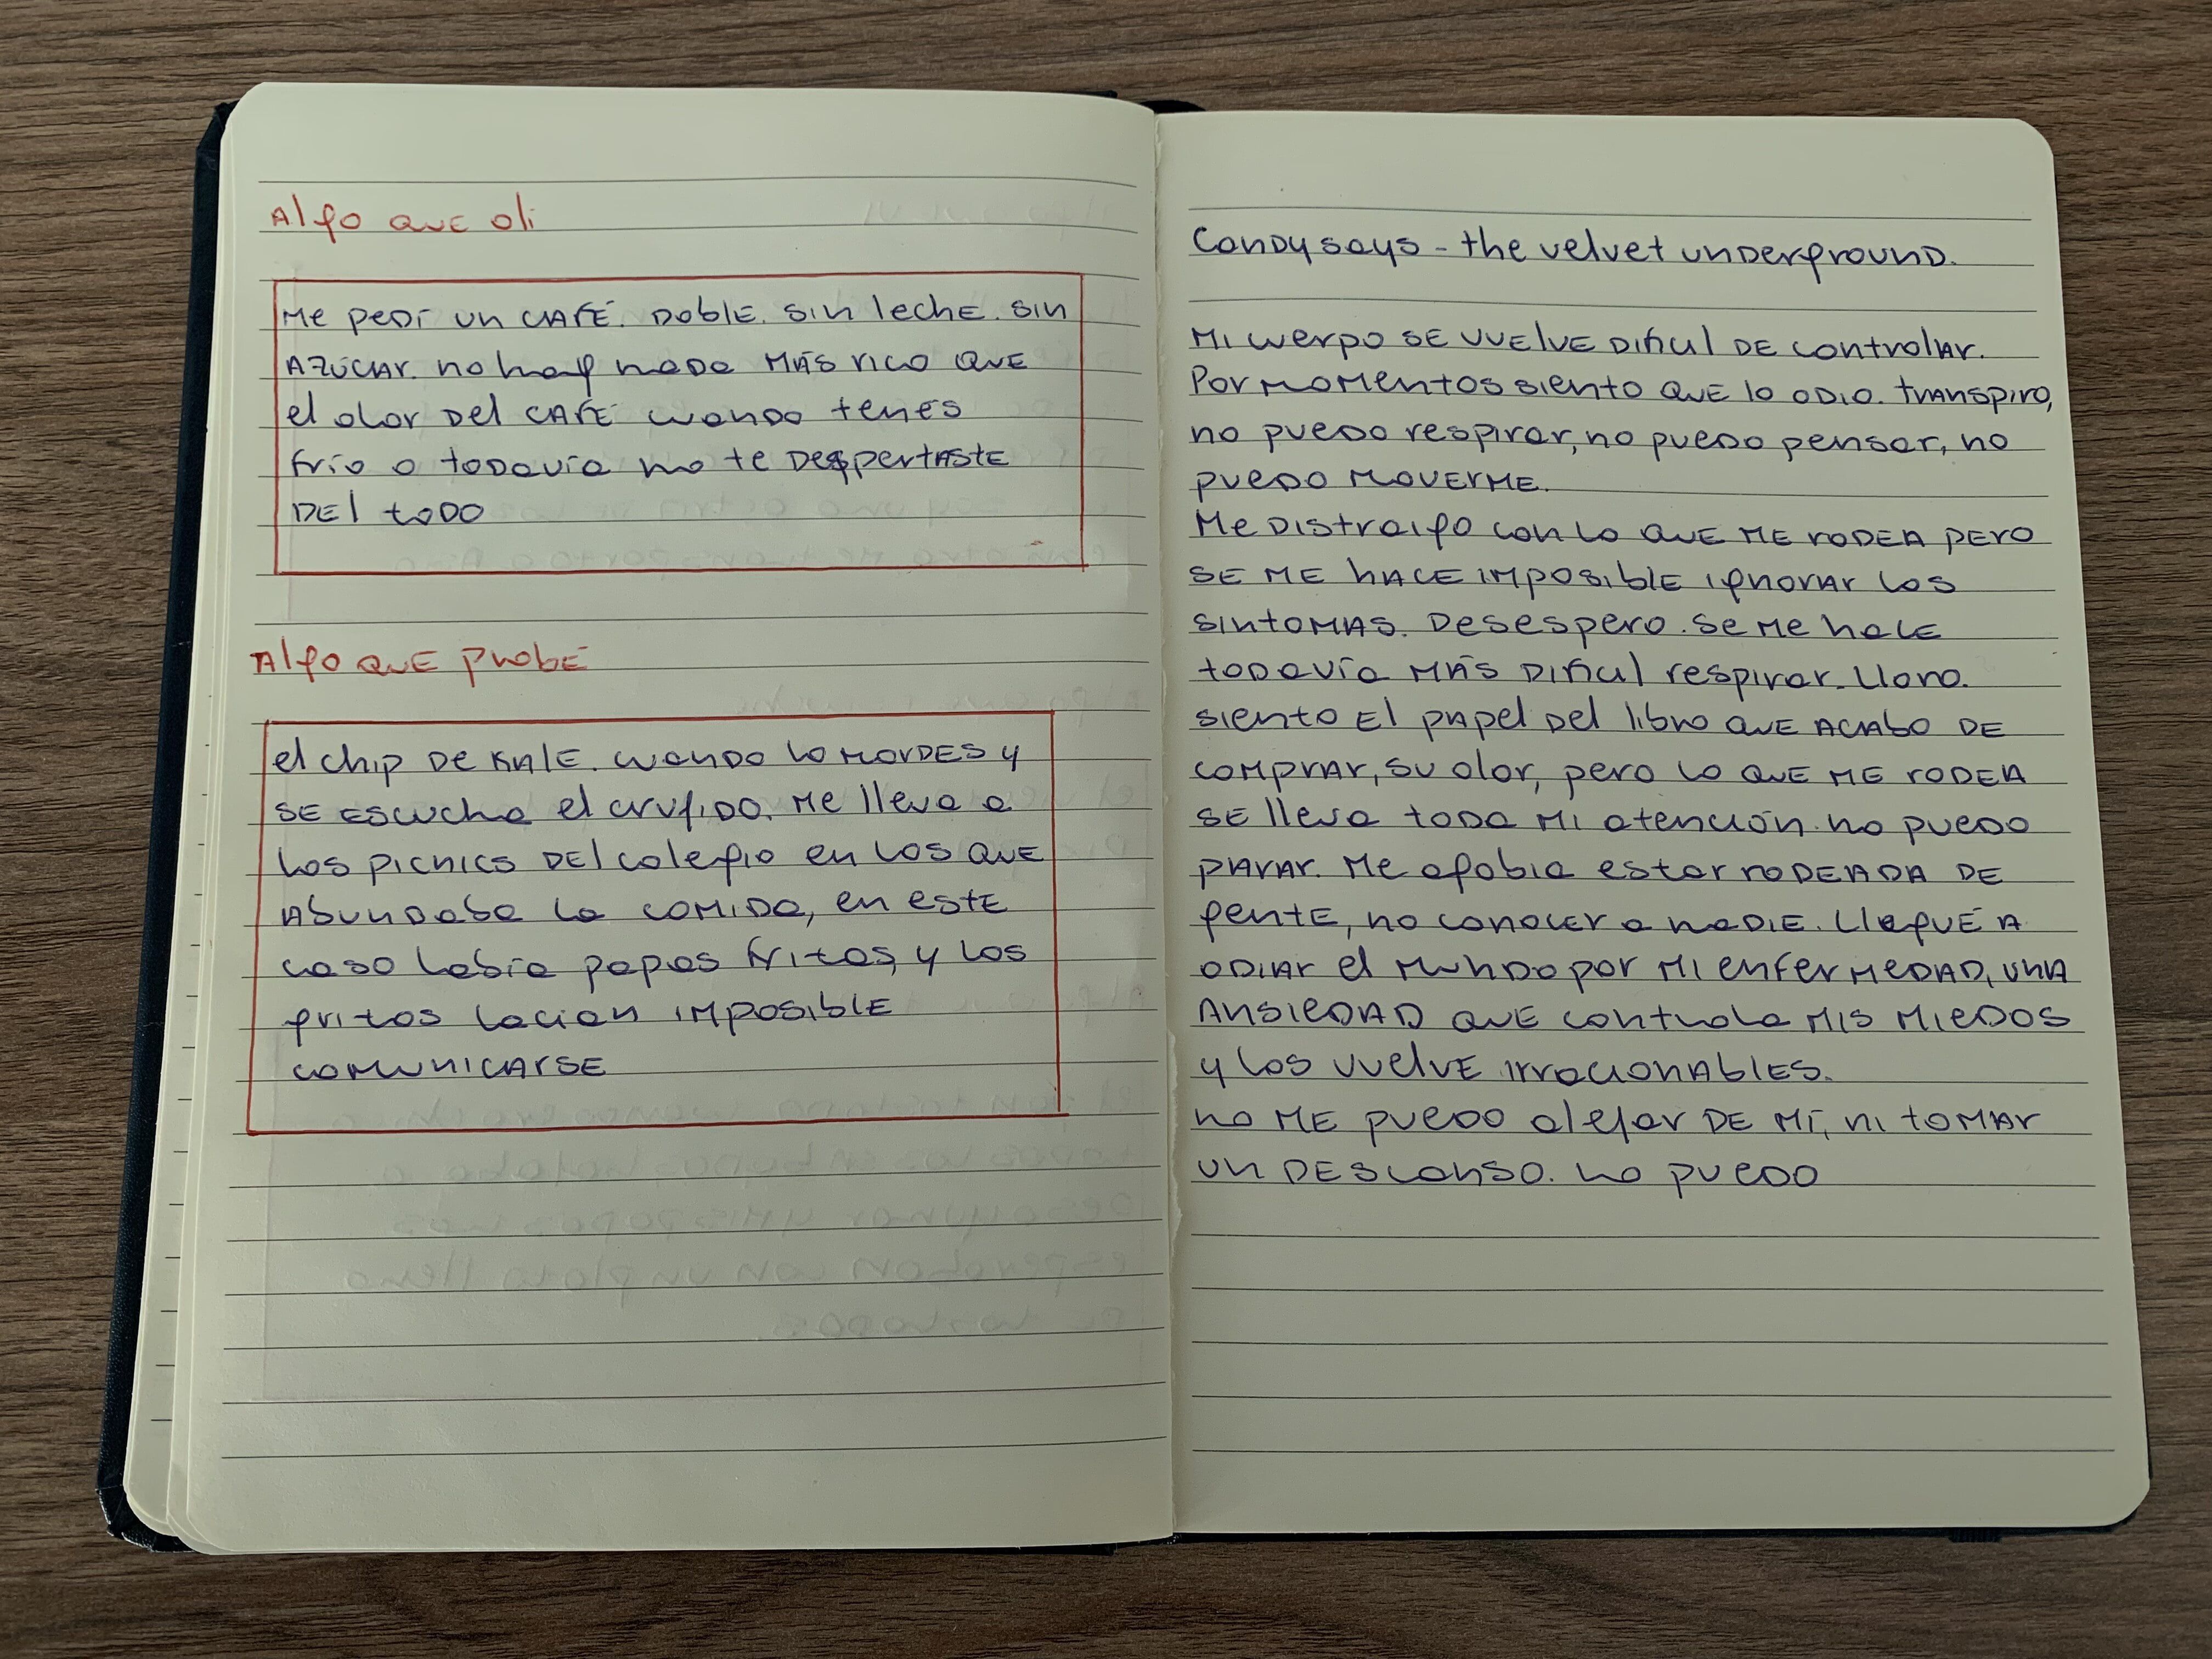 Algo que olí
Me pedí un café. Doble. Sin leche. Sin
azúcar. No hay nada más rico que
el olor del café cuando tenés
frío o todavía no te despertaste
del todo
Algo que probé
El chip de kale. Cuando lo mordes y
se escucha el crujido. Me lleva a
los picnics del colegio en los que
abundaba la comida, en este
caso había papas fritas, y los
gritos hacían imposible
comunicarse
Candy says - the velvet underground.
Mi cuerpo se vuelve difícil de controlar.
Por momentos siento que lo odio. Transpiro,
no puedo respirar, no puedo pensar, no
puedo moverme.
Me distraigo con lo que me rodea pero
se me hace imposible ignorar los
síntomas. Desespero. Se me hace
todavía más difícil respirar. Lloro.
Siento el papel del libro que acabo de
comprar, su olor, pero lo que me rodea
se lleva toda mi atención. No puedo
parar. Me agobia estar rodeada de
gente, no conocer a nadie. Llegué a
odiar el mundo por mi enfermedad, una
ansiedad que controla mis miedos
y los vuelve irracionables.
No me puedo alejar de mí, ni tomar
un descanso. No puedo